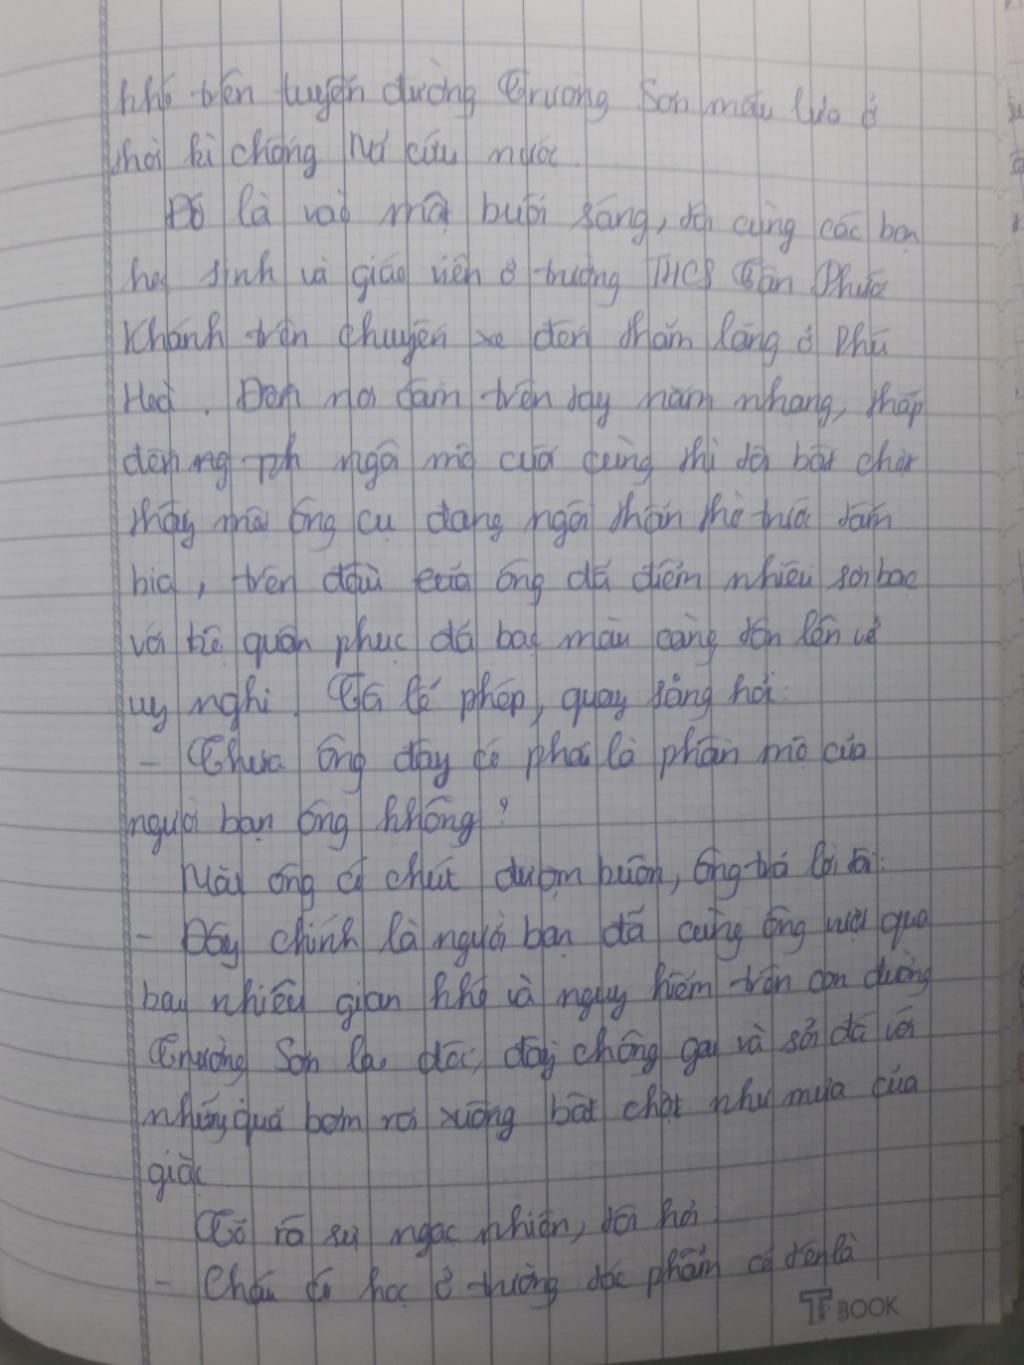 khổ trên tuyến đường Trường Sơn máu lửa ở
thời kì chống Mĩ cứu nước.
Đó là vào một buổi sáng, tôi cùng các bạn
học sinh và giáo viên ở trường THCS Tân Phước
Khánh trên chuyến xe đến thăm lăng ở Phú
Hoà. Đến nơi cầm trên tay nắm nhang, thắp
đến ngôi mộ cuối cùng thì tôi bất chợt
thấy một ông cụ đang ngồi thẩn thờ trước tấm
bia, trên đầu của ông đã điểm nhiều sợi bạc
với bộ quân phục đã bạc màu càng tôn lên vẻ
uy nghi. Tôi lễ phép, quay sang hỏi:
- Thưa ông đây có phải là phần mộ của
người bạn ông không?
Mặt ông có chút đượm buồn, ông trả lời tôi:
- Đây chính là người bạn đã cùng ông vượt qua
bao nhiêu gian khổ và nguy hiểm trên con đường
Trường Sơn lao dốc, đầy chông gai và sỏi đá với
những quả bom rơi xuống bất chợt như mưa của
giặc.
Tỏ rõ sự ngạc nhiên, tôi hỏi:
- Cháu có học ở trường tác phẩm có tên là
TT BOOK